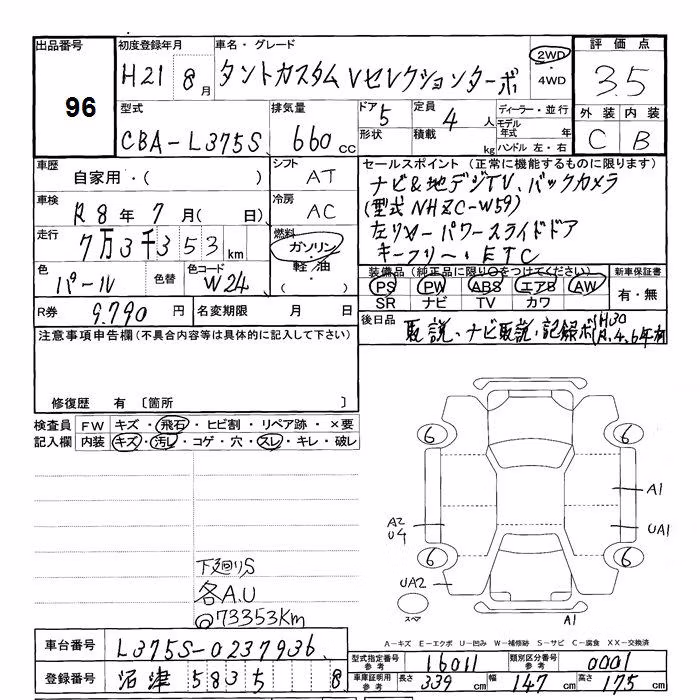 出品番号 初度登録年月 車名・グレード 評価点
96 H21 8月 タントカスタム Vセレクションターボ 2WD・4WD 3.5
型式 排気量 ドア 5 定員 4人 ディーラー・並行 外装 内装
CBA-L375S 660cc 形状 積載 kg モデル年式 年 C B
ハンドル 左・右
車歴 自家用・( ) シフト AT セールスポイント (正常に機能するものに限ります)
ナビ&地デジTV、バックカメラ
車検 R8年7月( 日) 冷房 AC (型式NHZC-W59)
走行 7万3千353km 燃料 ガソリン・軽油・( ) 左リヤーパワースライドドア
キーフリー・ETC
色 パール 色替 色コード W24 装備品 (純正品に限り○をつけてください) 新車保証書
PS PW ABS エアB AW 有・無
SR ナビ TV カワ
R券 9,790円 名変期限 月 日 後日品 取説、ナビ取説・記録ボ(H30 R.4、6年有
注意事項申告欄(不具合内容等は具体的に記入して下さい)
修復歴 有 〔箇所 〕
検査員記入欄 FW キズ・飛石・ヒビ割・リペア跡・×要
内装 キズ・汚レ・コゲ・穴・スレ・キレ・破レ
6 6
A1
A2 U4 UA1
6 6
UA2
スペア A1
下廻りS
各A.U
@73353Km
A-キズ E-エクボ U-凹み W-補修跡 S-サビ C-腐食 XX-交換済
車台番号 L375S-0237936 型式指定番号 参考 16011 類別区分番号 参考 0001
登録番号 沼津 583 5 8 車庫証明用 参考 長さ 339cm 幅 147cm 高さ 175cm